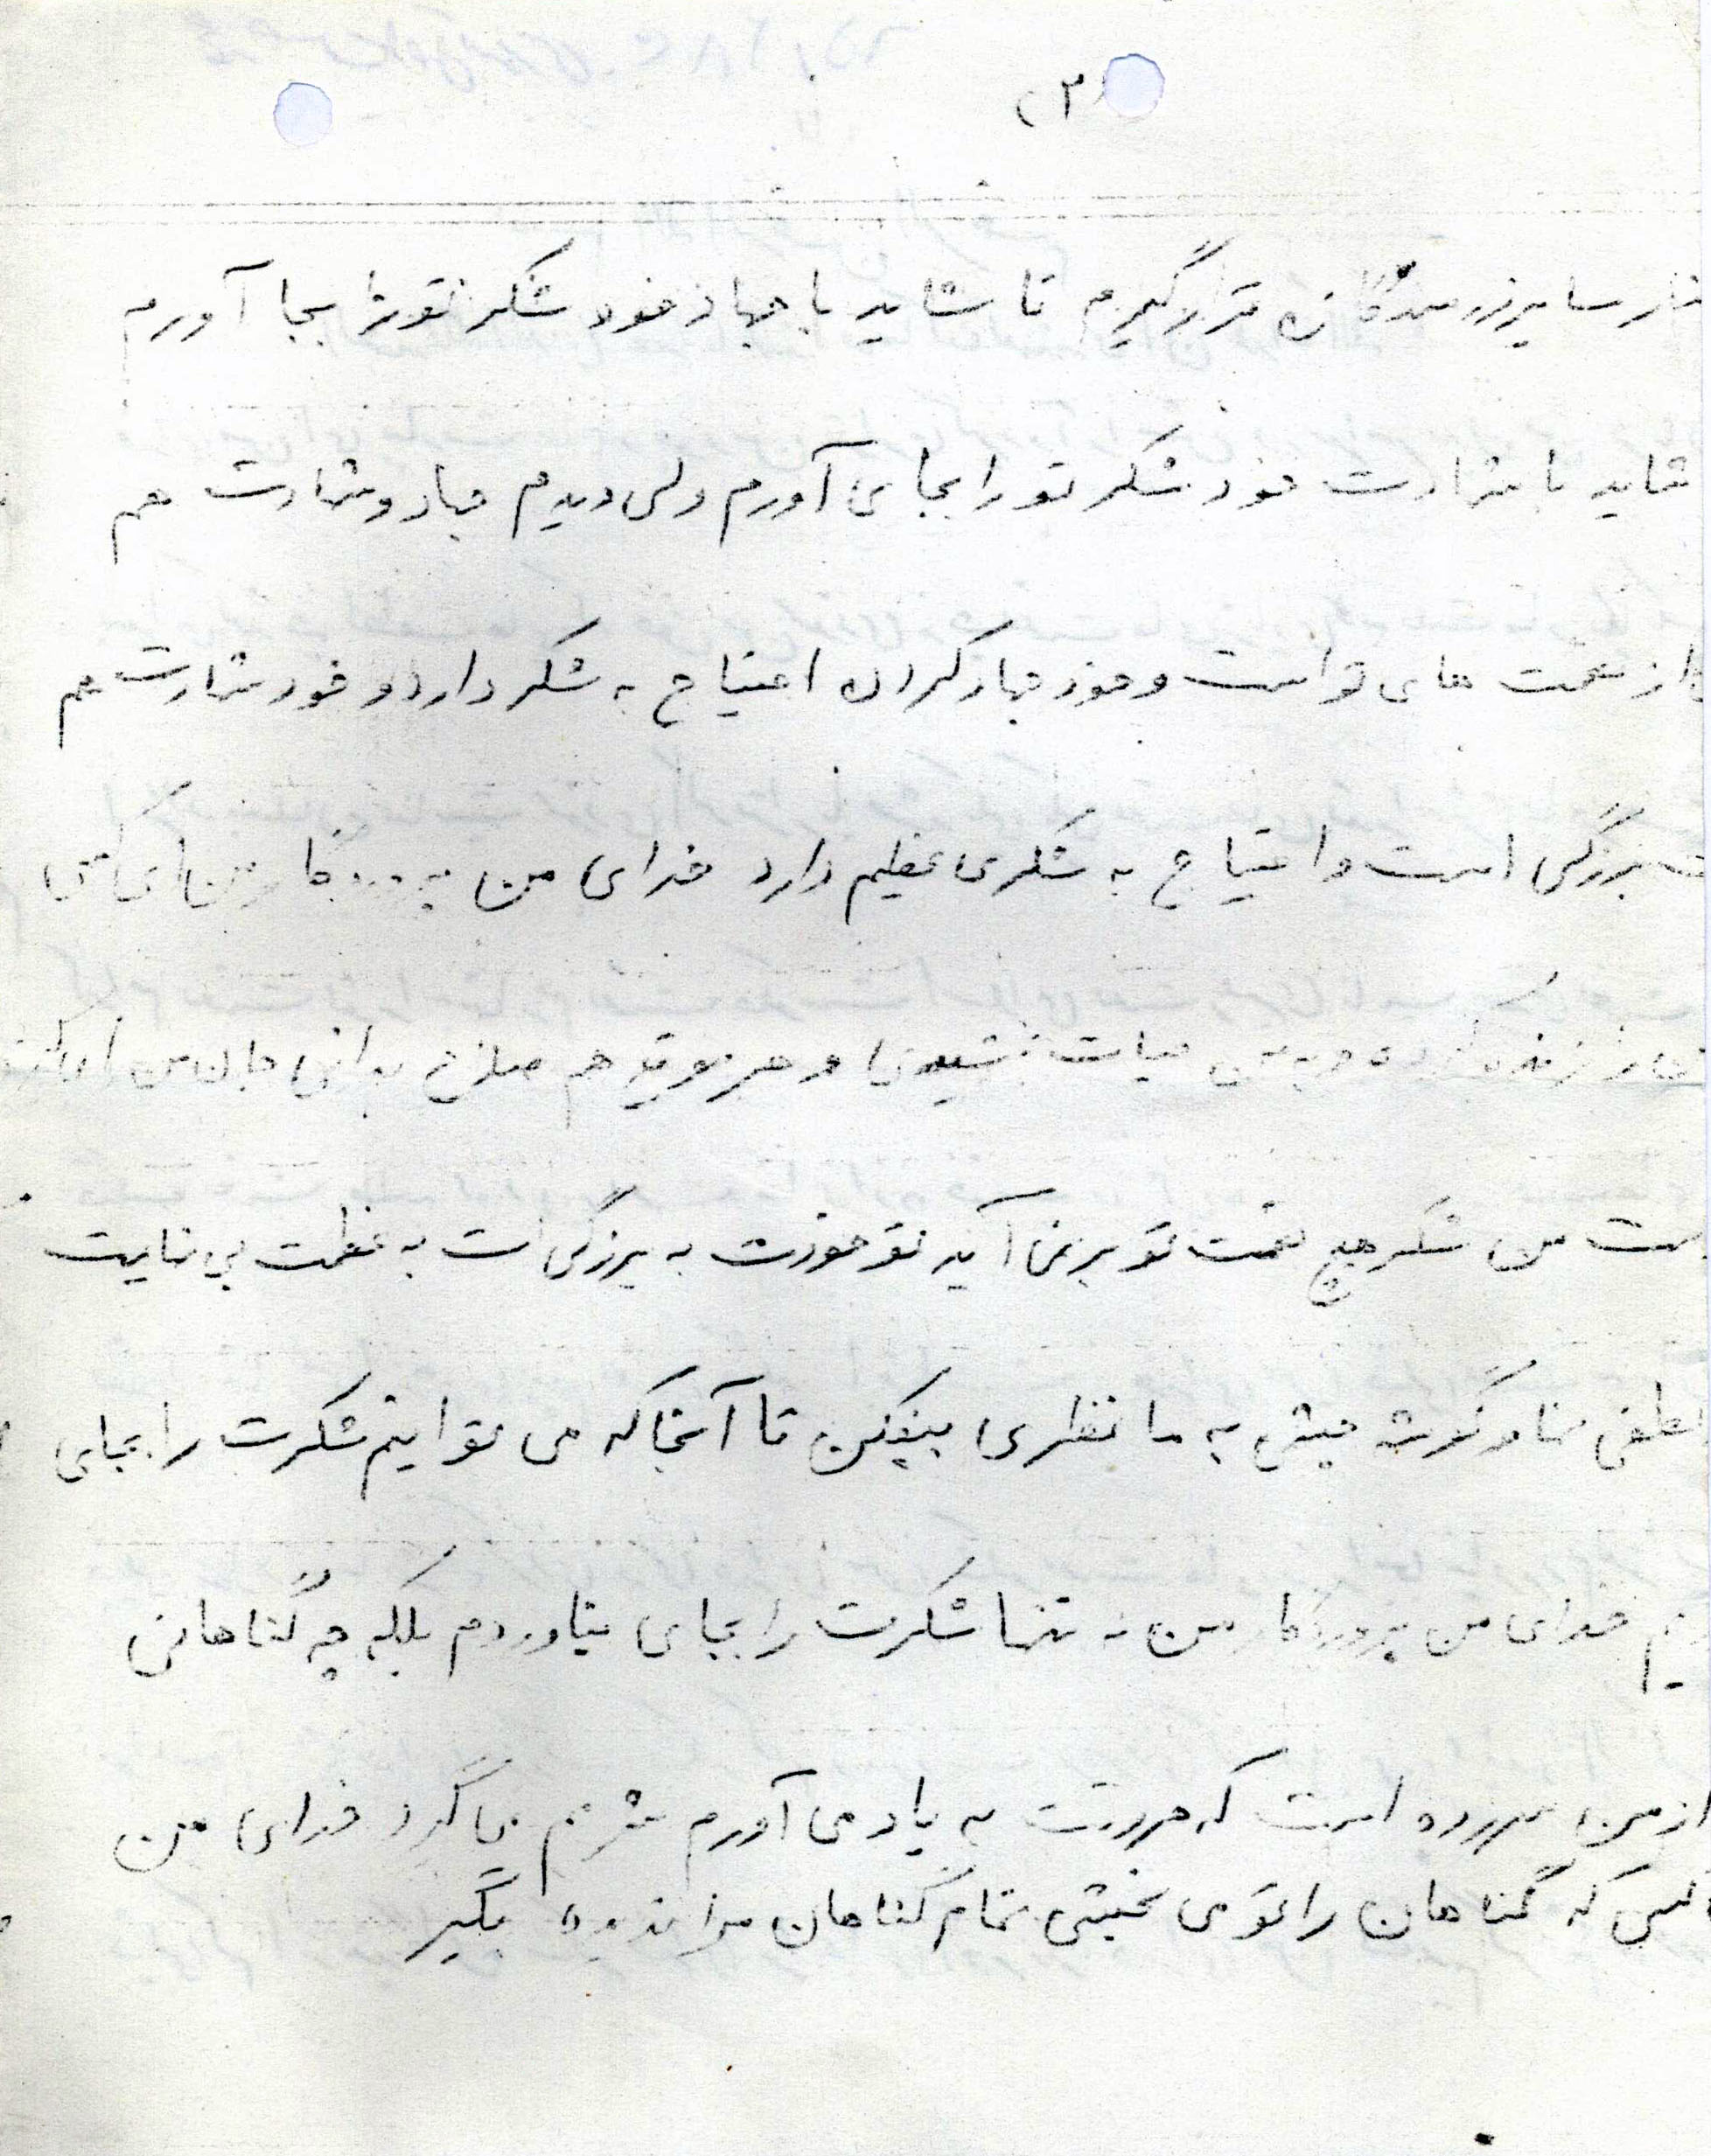 (۲)
سایر رزمندگان قرار گیرم تا شاید با جهاد خود شکر تو را بجا آورم
شاید با شهادت خود شکر تو را بجای آورم ولی دیدم جهاد و شهادت هم
از نعمت های تو است و خود جهاد کردن احتیاج به شکر دارد و خود شهادت هم
بزرگی است و احتیاج به شکری عظیم دارد خدای من پروردگار من ای کسی
زنده کرده و به من حیات بخشیدی و هر موقع هم صلاح بدانی جان من را
دست من شکر هیچ نعمت تو بر نمی آید تو خودت به بزرگی ات به عظمت بی نهایت
لطفی نما و گوشه چشمی به ما نظری بیفکن تا آنجا که می توانیم شکرت را بجای
خدای من پروردگار من نه تنها شکرت را بجای نیاوردم بلکه چه گناهانی
از من سر زده است که هر وقت به یاد می آورم شرمم می گیرد خدای من
کسی که گناهان را تو می بخشی تمام گناهان مرا ندیده بگیر